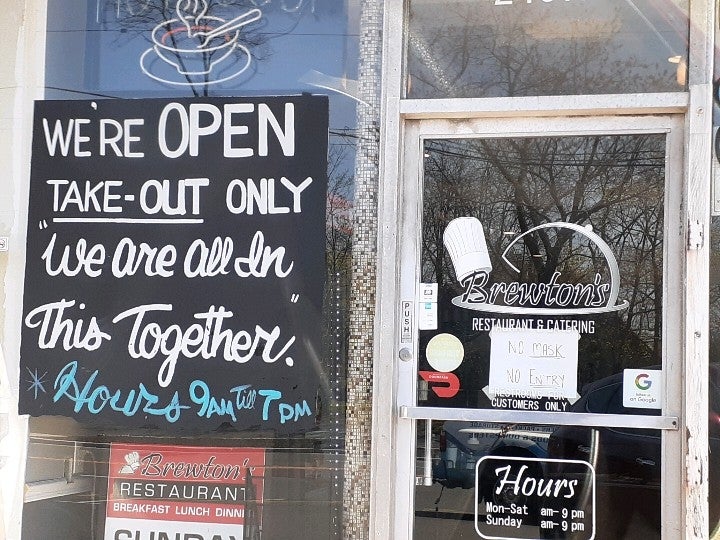 WE'RE OPEN
TAKE-OUT ONLY
"We are all In
This Together."
* Hours 9AM Till 7PM
Brewton's
RESTAURANT
BREAKFAST LUNCH DINN
SUNDAY
Brewton's
RESTAURANT & CATERING
PUSH
NO MASK
NO ENTRY
RESTROOMS FOR
CUSTOMERS ONLY
G
on Google
Hours
Mon-Sat am- 9 pm
Sunday am- 9 pm